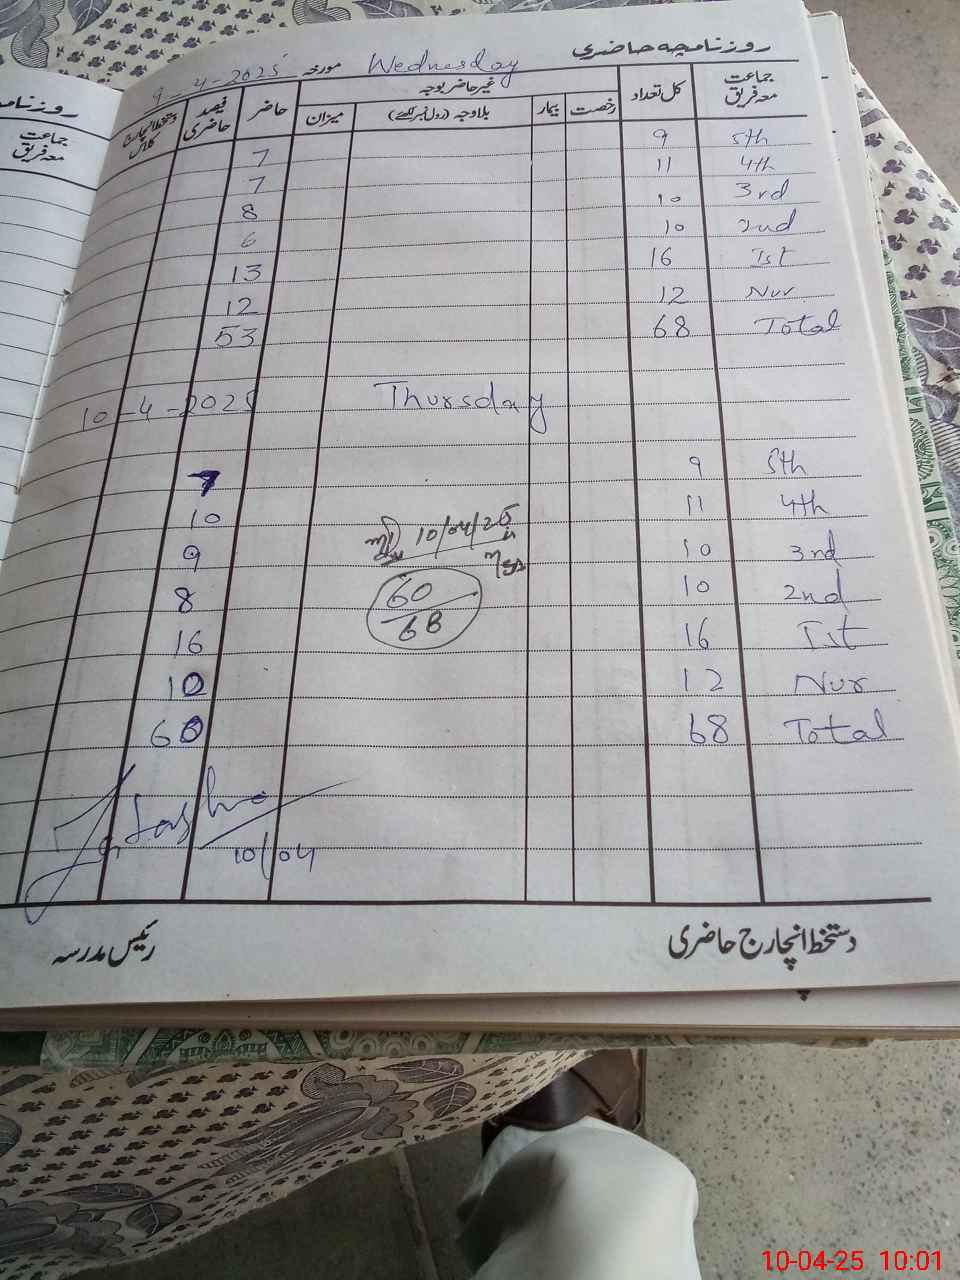 روزنامچہ حاضری
مورخہ Wednesday 9-4-2025
جماعت معہ فریق کل تعداد غیر حاضر بوجہ حاضر فیصد حاضری دستخط انچارج کلاس
رخصت بیمار بلاوجہ (رول نمبر لکھئے) میزان
5th 9 7
4th 11 7
3rd 10 8
2nd 10 6
Ist 16 13
Nur 12 12
Total 68 53
10-4-2025 Thursday
5th 9 7
4th 11 10
3rd 10 9
2nd 10 8
Ist 16 16
Nur 12 10
Total 68 60
10/04/25
60
68
10/04
دستخط انچارج حاضری
رئیس مدرسہ
جماعت
معہ فریق
10-04-25 10:01